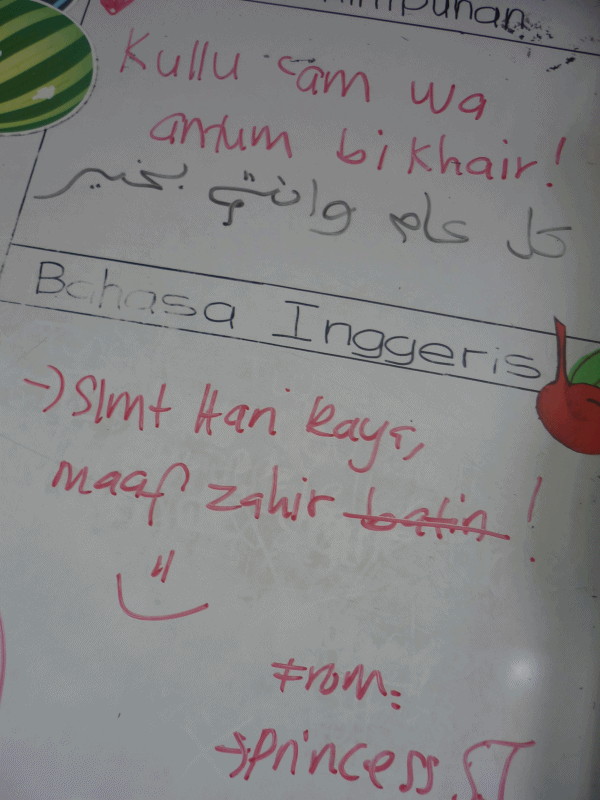 Kullu cam wa
antum bi khair!
كل عام وانتم بخير
Bahasa Inggeris
→ Slmt Hari Raya,
maaf zahir batin !
From:
→ Princess